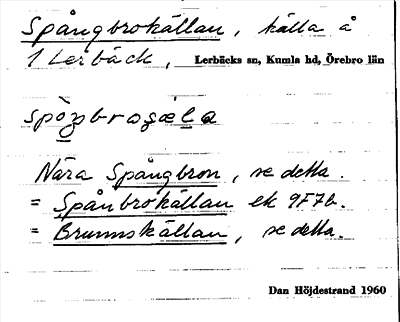 Spångbrokällan, källa å
1 Lerbäck, Lerbäcks sn, Kumla hd, Örebro län
Nära Spångbron, se detta.
= Spånbrokällan ek 9F7b.
= Brunnskällan, se detta.
Dan Höjdestrand 1960